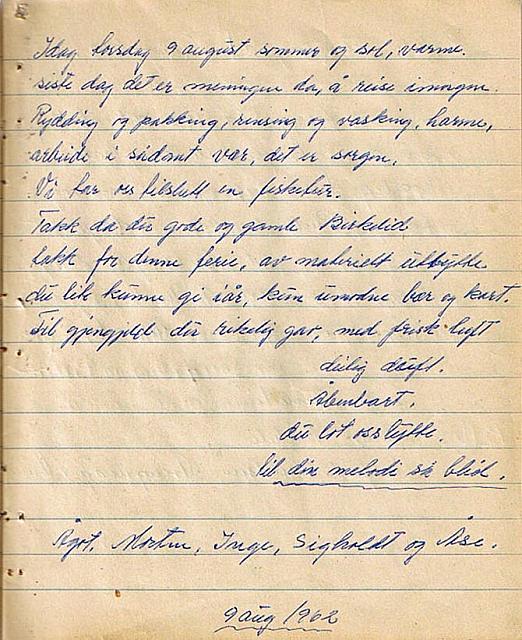 Idag torsdag 9 august sommer og sol, varme.
siste dag det er meningen da, å reise imorgen.
Rydding og pakking, rensing og vasking, harme,
arbeide i sådant vær, det er sorgen.
Vi tar oss tilslutt en fisketur.
Takk da du gode og gamle Birkelid
takk for denne ferie, av materielt utbytte
du lik kunne gi iår, kun umodne bær og kart.
Til gjengjeld du rikelig gav, med frisk luft
deilig duft.
Åbenbart.
du lot oss lytte.
til din melodi så blid.
Ågot, Morten, Inge, Sigholdt og Åse.
9 aug 1962